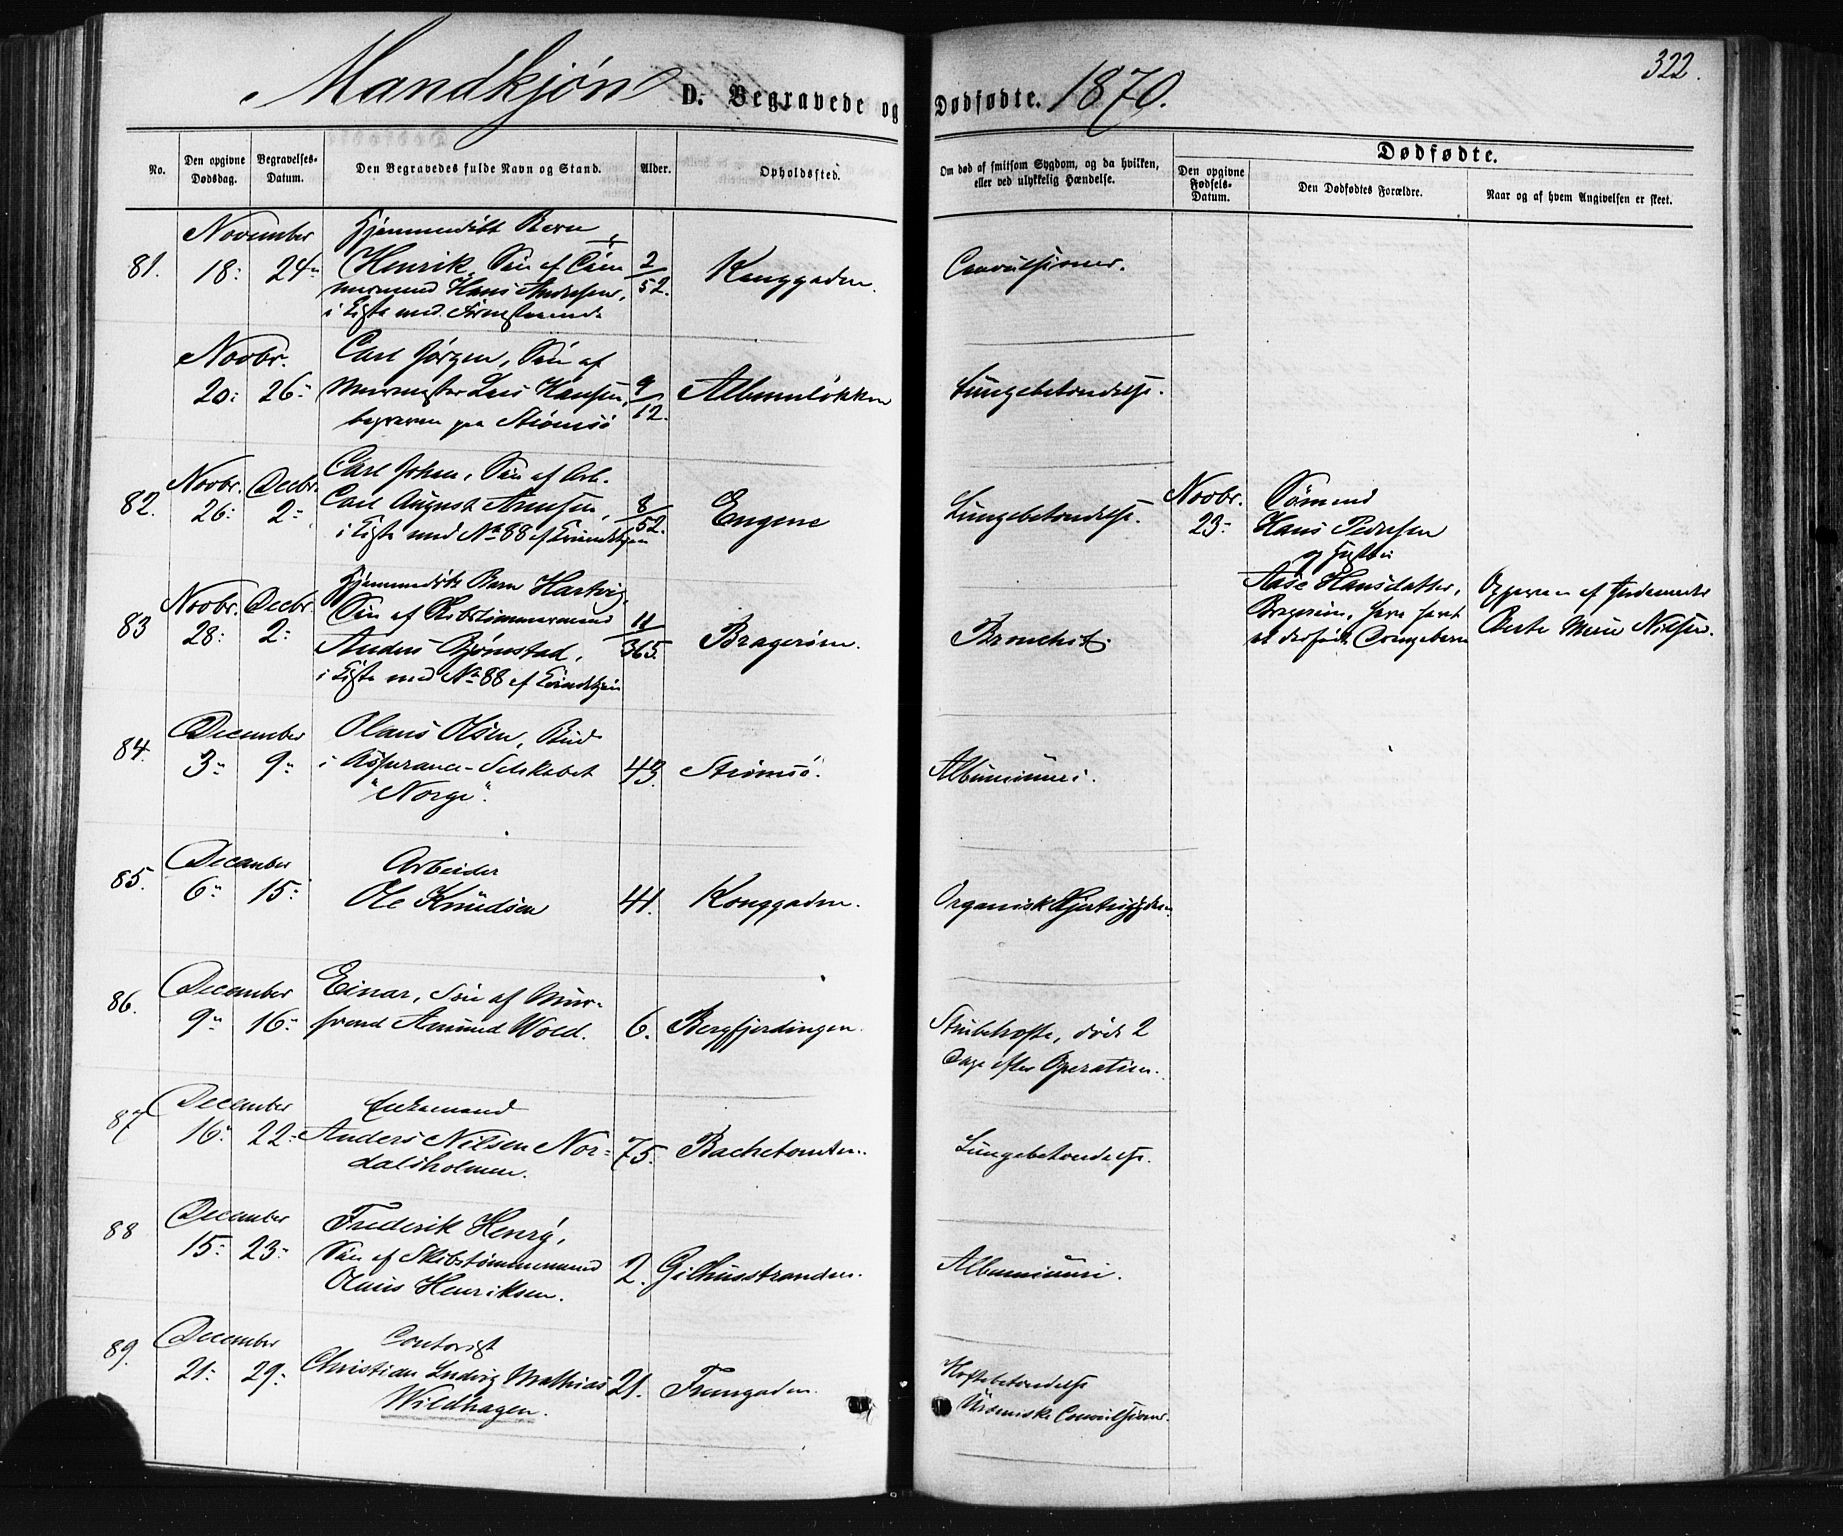 322.
Mandkjøn D. Begravede og Dødfødte. 1870.
No.
Den opgivne Dødsdag.
Begravelses-Datum.
Den Begravedes fulde Navn og Stand.
Alder.
Opholdssted.
Om død af smitsom Sygdom, og da hvilken,
eller ved ulykkelig Hændelse.
Dødfødte.
Den opgivne Fødsels-Datum.
Den Dødfødtes Forældre.
Naar og af hvem Angivelsen er skeet.
November
Hjemmedøbt Barn
81. 18: 24" Henrik, Søn af Tømmermand Hans Andersen, 2/52. Konggaden. Convulsioner.
i Kiste med
Novbr. Carl Jørgen, Søn af
20: 26" Murmester Lars Hansen, 9/12. Albumløkken Lungebetændelse.
begraven paa Strømsø
Novbr. Decbr. Carl Johan, Søn af Arb.
82. 26: 2" Carl August Arnesen, 8/52. Engene Lungebetændelse.
i Kiste med No 88 af Kvindekjøn
Novbr. 23" Sømand
Hans Pedersen
og Hustru
Aase Hansdatter,
Bragernes,
Opgiven af Jordemoder
Berte Marie Nilsen.
Novbr. Decbr. Hjemmedøbt Barn Hartvig,
83 28: 2" Søn af Skibstømmermand 11/365. Bragerøen. Bronchit.
Anders Gjømstad,
i Kiste med No 88 af Kvindekjøn
December Olaus Olsen, Bud
84. 3" 9" i Assurance-Selskabet 43. Strømsø. Albuminuri.
"Norge".
December Arbeider
85. 6" 15" Ole Knudsen 41. Konggaden. Organisk Hjertesygdom
December Einar, Søn af Muur-
86. 9" 16" svend Amund Wold. 6. Bergfjerdingen. Strubehoste, død 2
Dage efter Operation.
December Enkemand
87 16" 22" Anders Nilsen Nor- 75. Bachetomten. Lungebetændelse.
dalsholmen.
December Frederik Henry,
88 15" 23" Søn af Skibstømmermand 2. Gilhusstranden. Albuminuri.
Olaus Henriksen.
December Contorist
89. 21" 29" Christian Ludvig Mathias 21. Tomtegaden. Hoftebetændelse
Wildhagen. Urämiske Convulsioner.